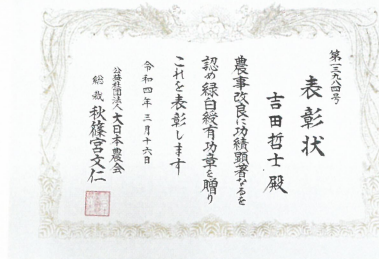 第一三九八四号
表彰状
吉田哲士殿
農事改良に功績顕著なるを
認め緑白綬有功章を贈り
これを表彰します
令和四年三月十六日
公益社団法人大日本農会
総裁秋篠宮文仁